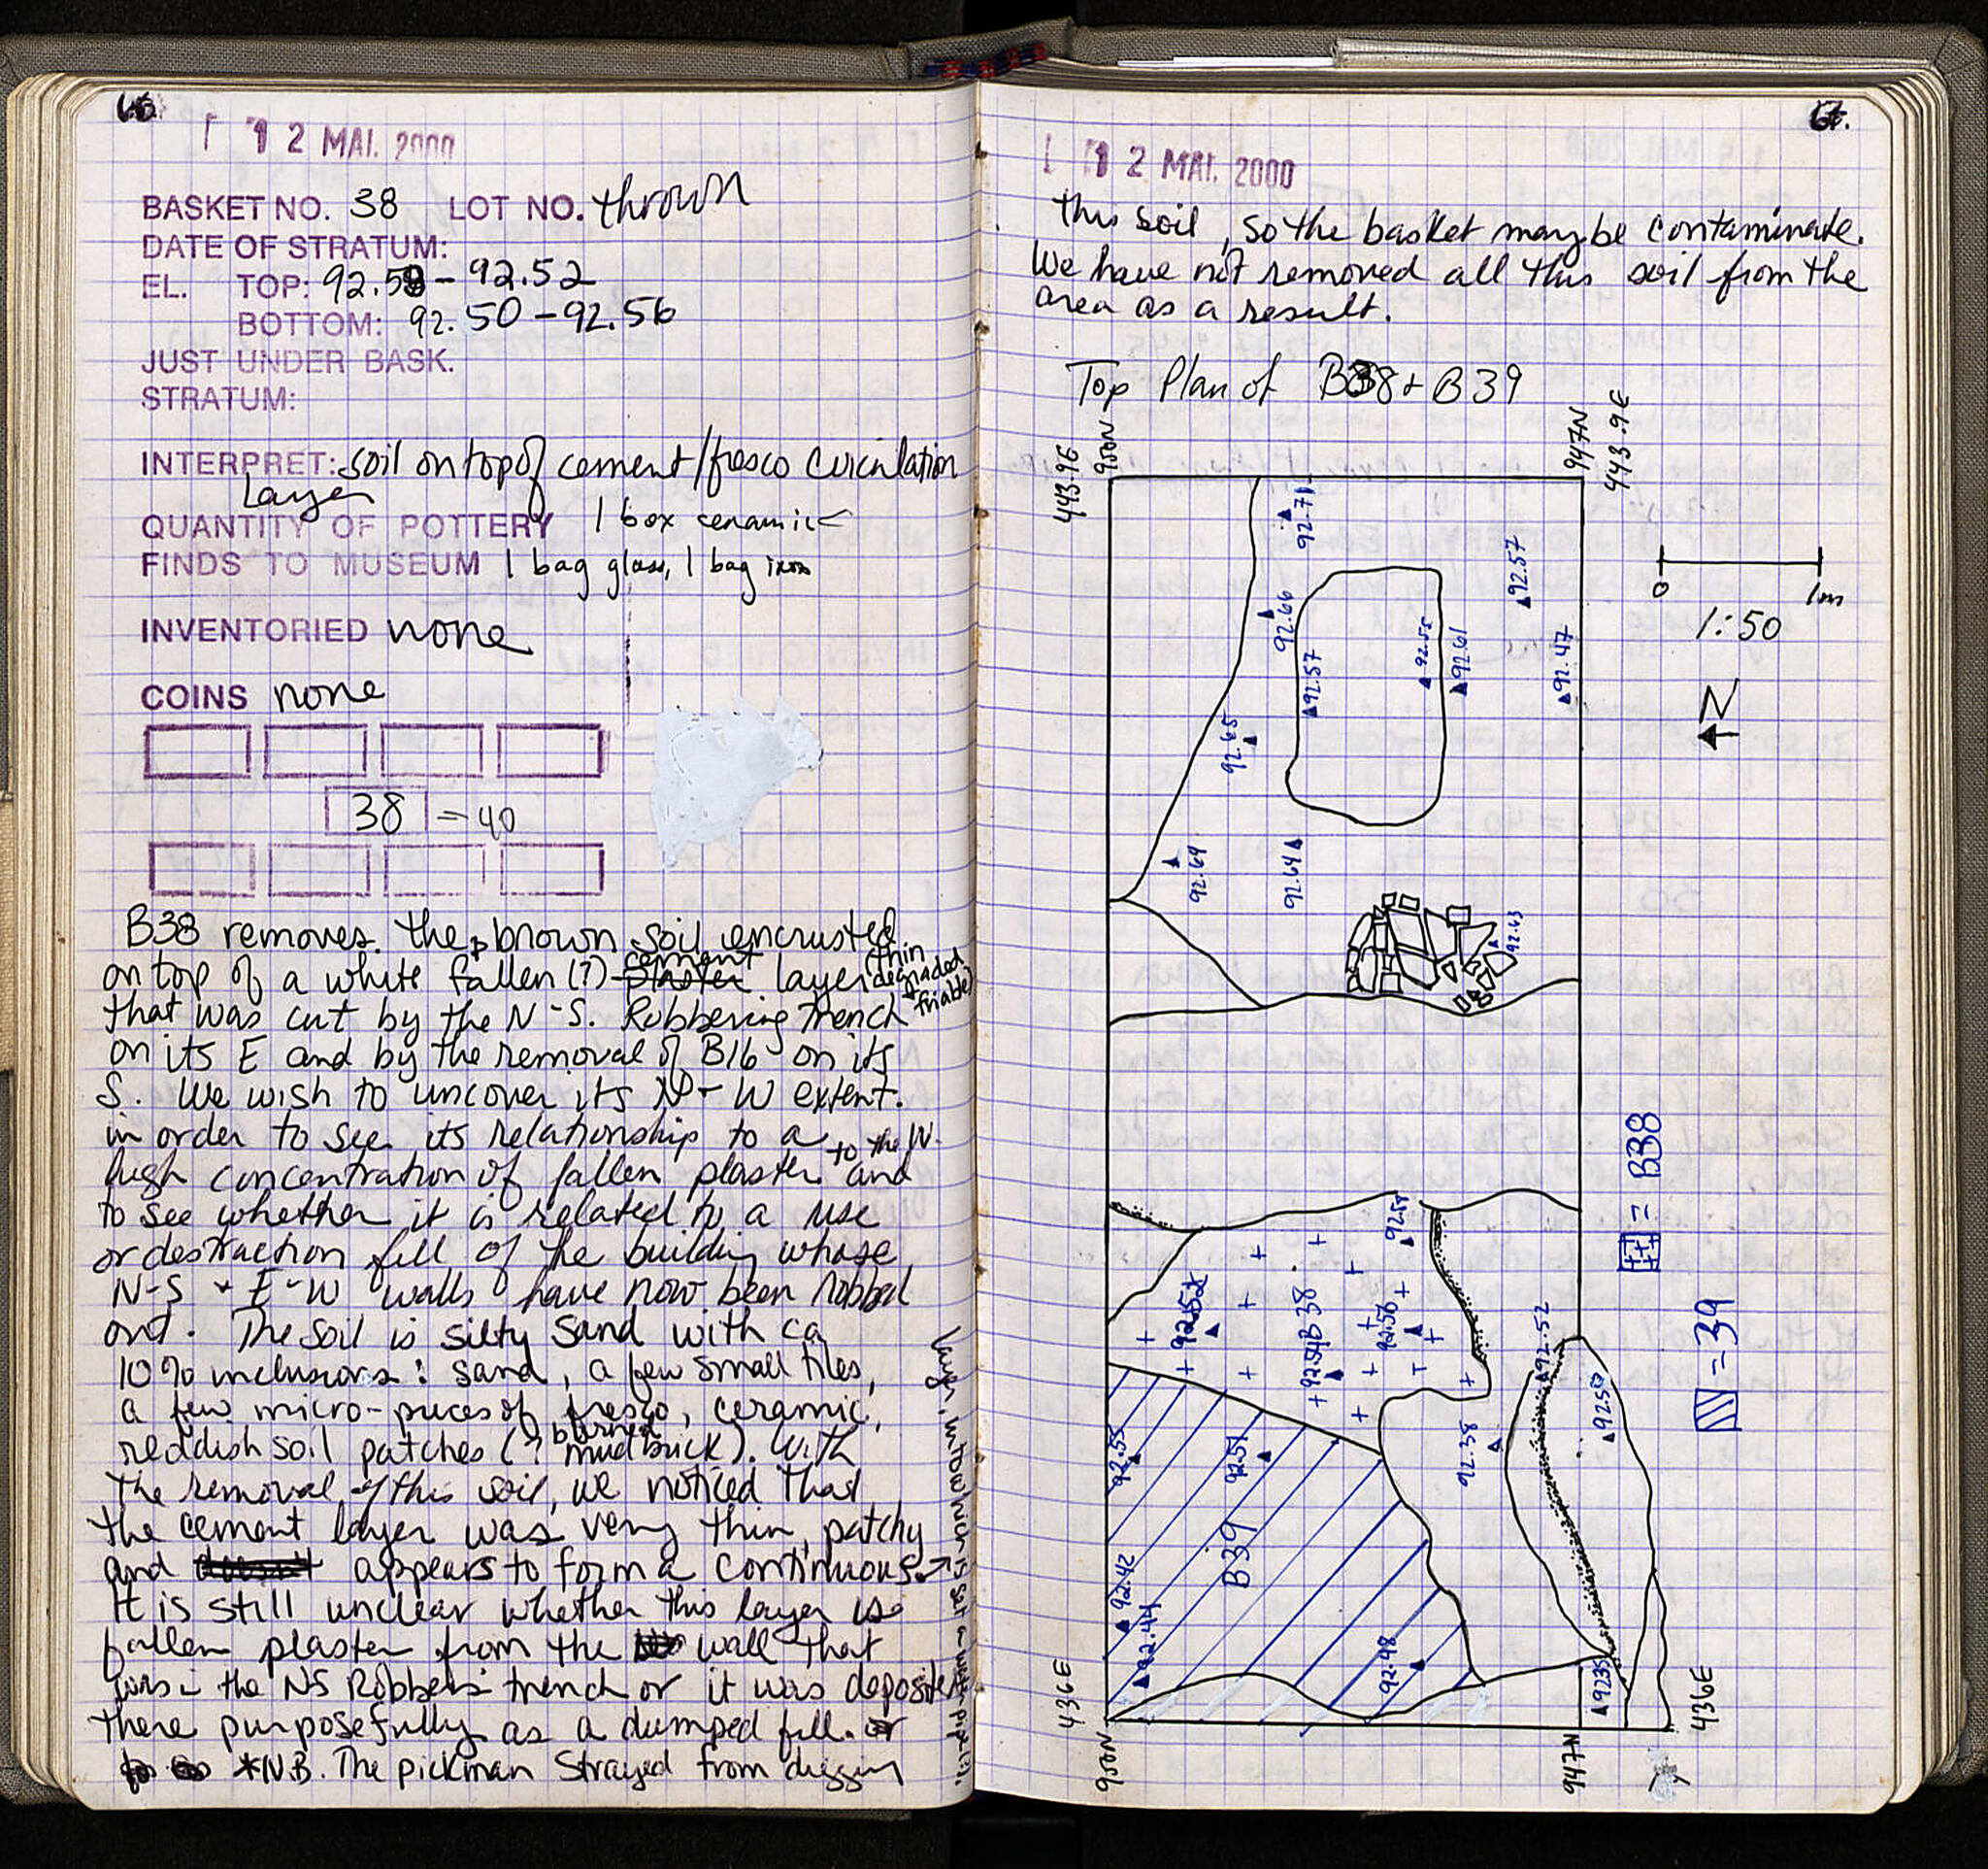 66.
12 MAI. 2000
BASKET NO. 38 LOT NO. thrown
DATE OF STRATUM:
EL. TOP: 92.58 - 92.52
BOTTOM: 92.50 - 92.56
JUST UNDER BASK.
STRATUM:
INTERPRET: soil on top of cement/fresco circulation
Layer
QUANTITY OF POTTERY 1 box ceramic
FINDS TO MUSEUM 1 bag glass, 1 bag iron
INVENTORIED none
COINS none
38 = 40
B38 removes the brown soil encrusted
on top of a white fallen (?) cement layer (thin degraded + friable)
that was cut by the N-S. Robbering Trench
on its E and by the removal of B16 on its
S. We wish to uncover its N + W extent.
in order to see its relationship to a
high concentration of fallen plaster to the W. and
to see whether it is related to a use
or destruction fill of the building whose
N-S + E-W walls have now been robbed
out. The soil is silty sand with ca
10% inclusions: sand, a few small tiles,
a few micro-pieces of fresco, ceramic,
reddish soil patches (? burned mudbrick). With
the removal of this soil, we noticed that
the cement layer was very thin, patchy
and appears to form a continuous
layer, into which is set a
It is still unclear whether this layer is
fallen plaster from the wall that
was in the NS Robbers' trench or it was deposited
there purposefully as a dumped fill. or
*N.B. The pickman strayed from digging
67.
12 MAI. 2000
this soil, so the basket may be contaminate.
We have not removed all this soil from the
area as a result.
Top Plan of B38 + B39
443.9E
950N
947N
443.9E
92.71
92.57
92.66
92.57
92.55
92.61
92.47
92.65
92.69
92.64
92.63
0 1m
1:50
N
92.58
92.52
92.54
B38
92.56
92.52
92.50
92.38
= B38
= 39
92.55
92.51
B39
92.42
92.44
92.48
92.35
436E
950N
947N
436E